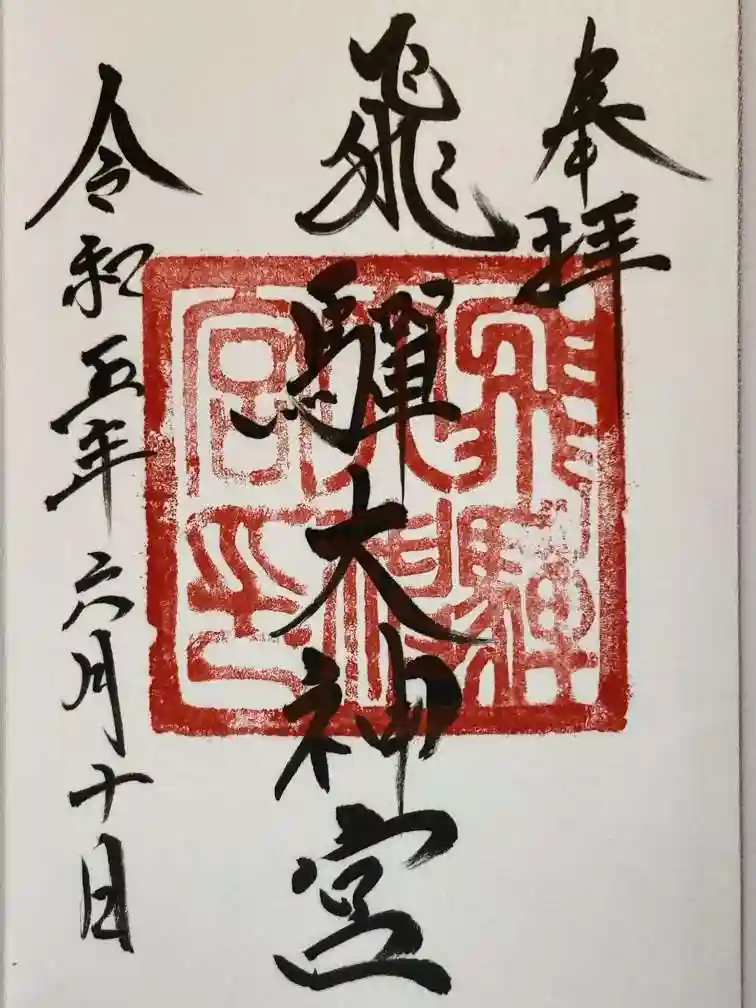 奉拝
飛騨大神宮
令和五年六月十日
飛騨
大神
宮印